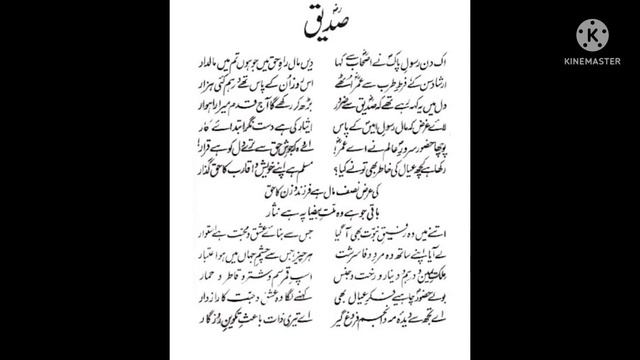 صدیقؓ
اک دن رسولِ پاکؐ نے اصحابؓ سے کہا دیں مال راہِ حق میں جو ہوں تم میں مالدار
ارشاد سن کے فرطِ طرب سے عمرؓ اٹھے اس روز ان کے پاس تھے درہم کئی ہزار
دل میں یہ کہہ رہے تھے کہ صدیقؓ سے ضرور بڑھ کر رکھے گا آج قدم میرا راہوار
لائے غرض کہ مال رسولِ امیںؐ کے پاس ایثار کی ہے دست نگر ابتدائے کار
پوچھا حضور سرورِ عالمؐ نے اے عمرؓ! اے وہ کہ جوشِ حق سے ترے دل کو ہے قرار
رکھا ہے کچھ عیال کی خاطر بھی تو نے کیا؟ مسلم ہے اپنے خویش و اقارب کا حق گذار
کی عرض نصف مال ہے فرزند و زن کا حق
باقی جو ہے وہ ملتِ بیضا پہ ہے نثار
اتنے میں وہ رفیقِ نبوت بھی آ گیا جس سے بنائے عشق و محبت ہے استوار
لے آیا اپنے ساتھ وہ مردِ وفا سرشت ہر چیز، جس سے چشمِ جہاں میں ہو اعتبار
ملکِ یمین و درہم و دینار و رخت و جنس اسپِ قمر سم و شتر و قاطر و حمار
بولے حضورؐ چاہیے فکرِ عیال بھی کہنے لگا وہ عشق و محبت کا راز دار
اے تجھ سے دیدۂ مہ و انجم فروغ گیر اے تیری ذات باعثِ تکوینِ روزگار
KINEMASTER